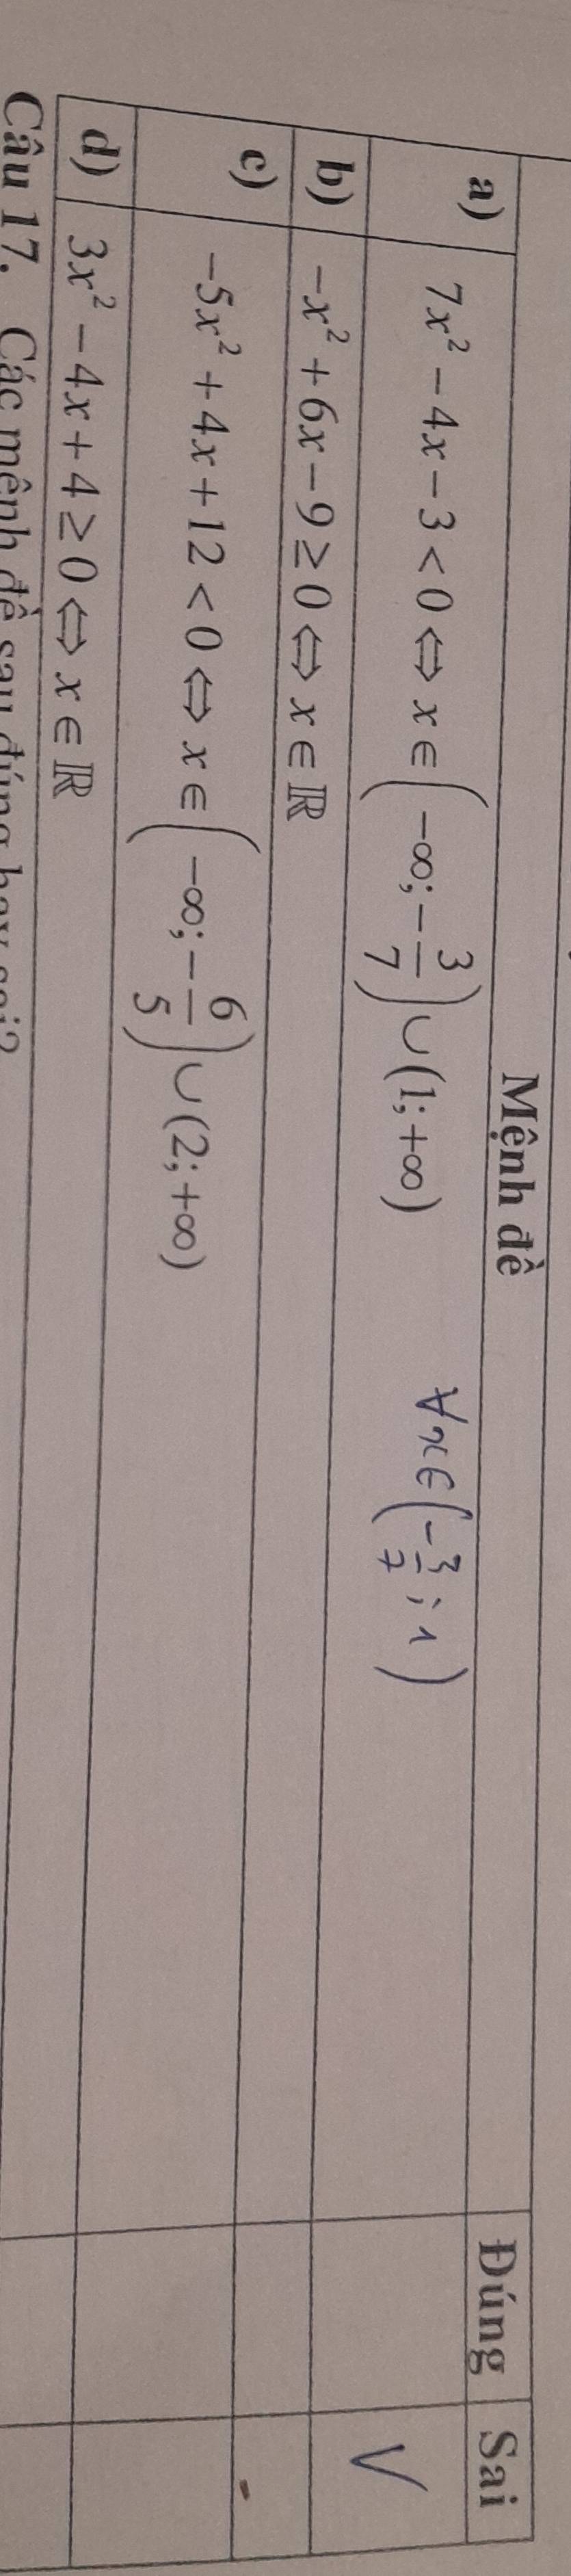 Mệnh đề Đúng Sai
a) 7x² − 4x − 3 < 0 ⇔ x ∈ (−∞; −3/7) ∪ (1; +∞) ∀x ∈ (−3/7; 1) V
b) −x² + 6x − 9 ≥ 0 ⇔ x ∈ ℝ
c) −5x² + 4x + 12 < 0 ⇔ x ∈ (−∞; −6/5) ∪ (2; +∞)
d) 3x² − 4x + 4 ≥ 0 ⇔ x ∈ ℝ
Câu 17. Các mệnh đề sau đúng hay sai?